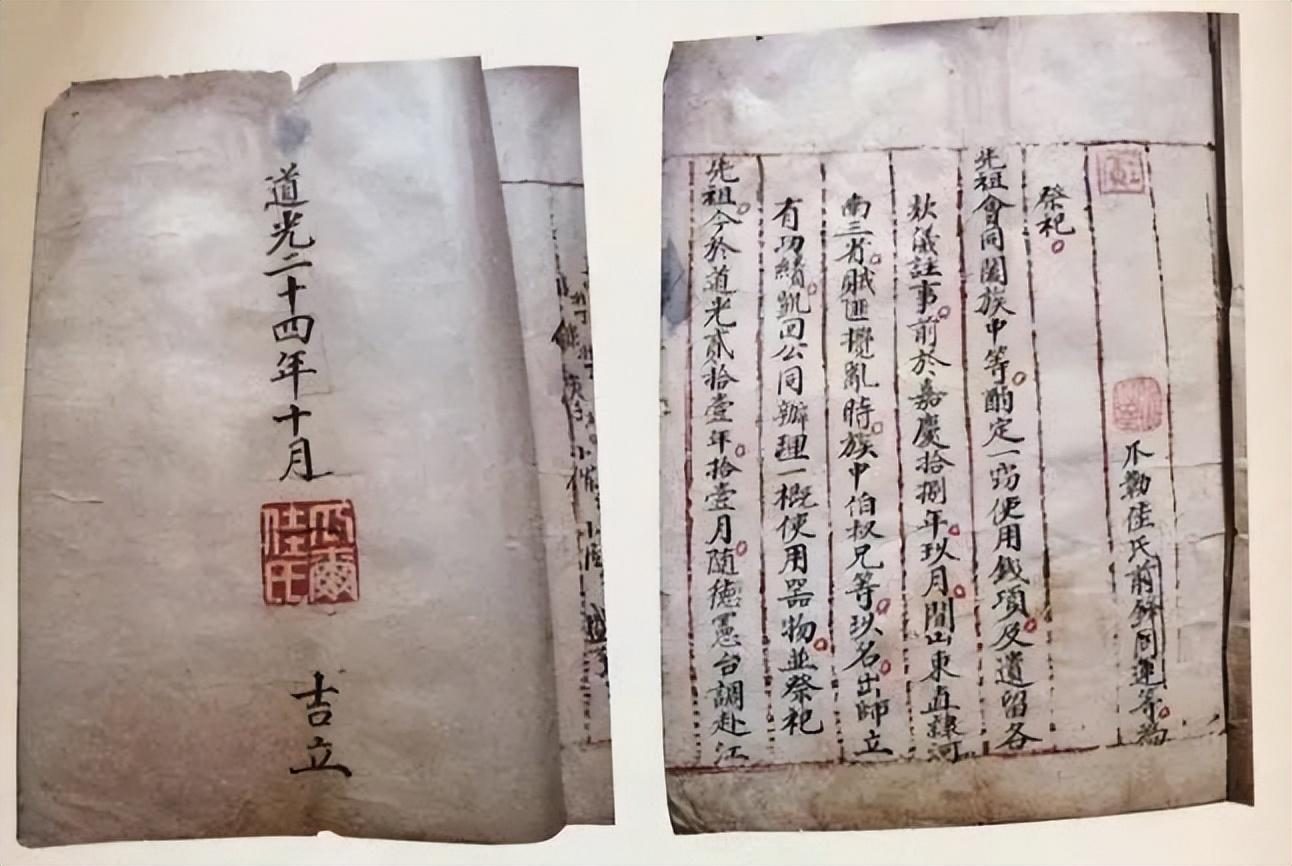 道光二十四年十月
瓜爾佳氏
吉立
爪勒佳氏前鋒同連等為
祭祀
先祖會同闔族中等酌定一切使用錢項及遺留各
款儀註事前於嘉慶拾捌年玖月間山東直隸河
南三省賊匪攪亂時族中伯叔兄等玖名出師立
有功績凱回公同辦理一概使用器物並祭祀
先祖今於道光貳拾壹年拾壹月隨德憲台調赴江